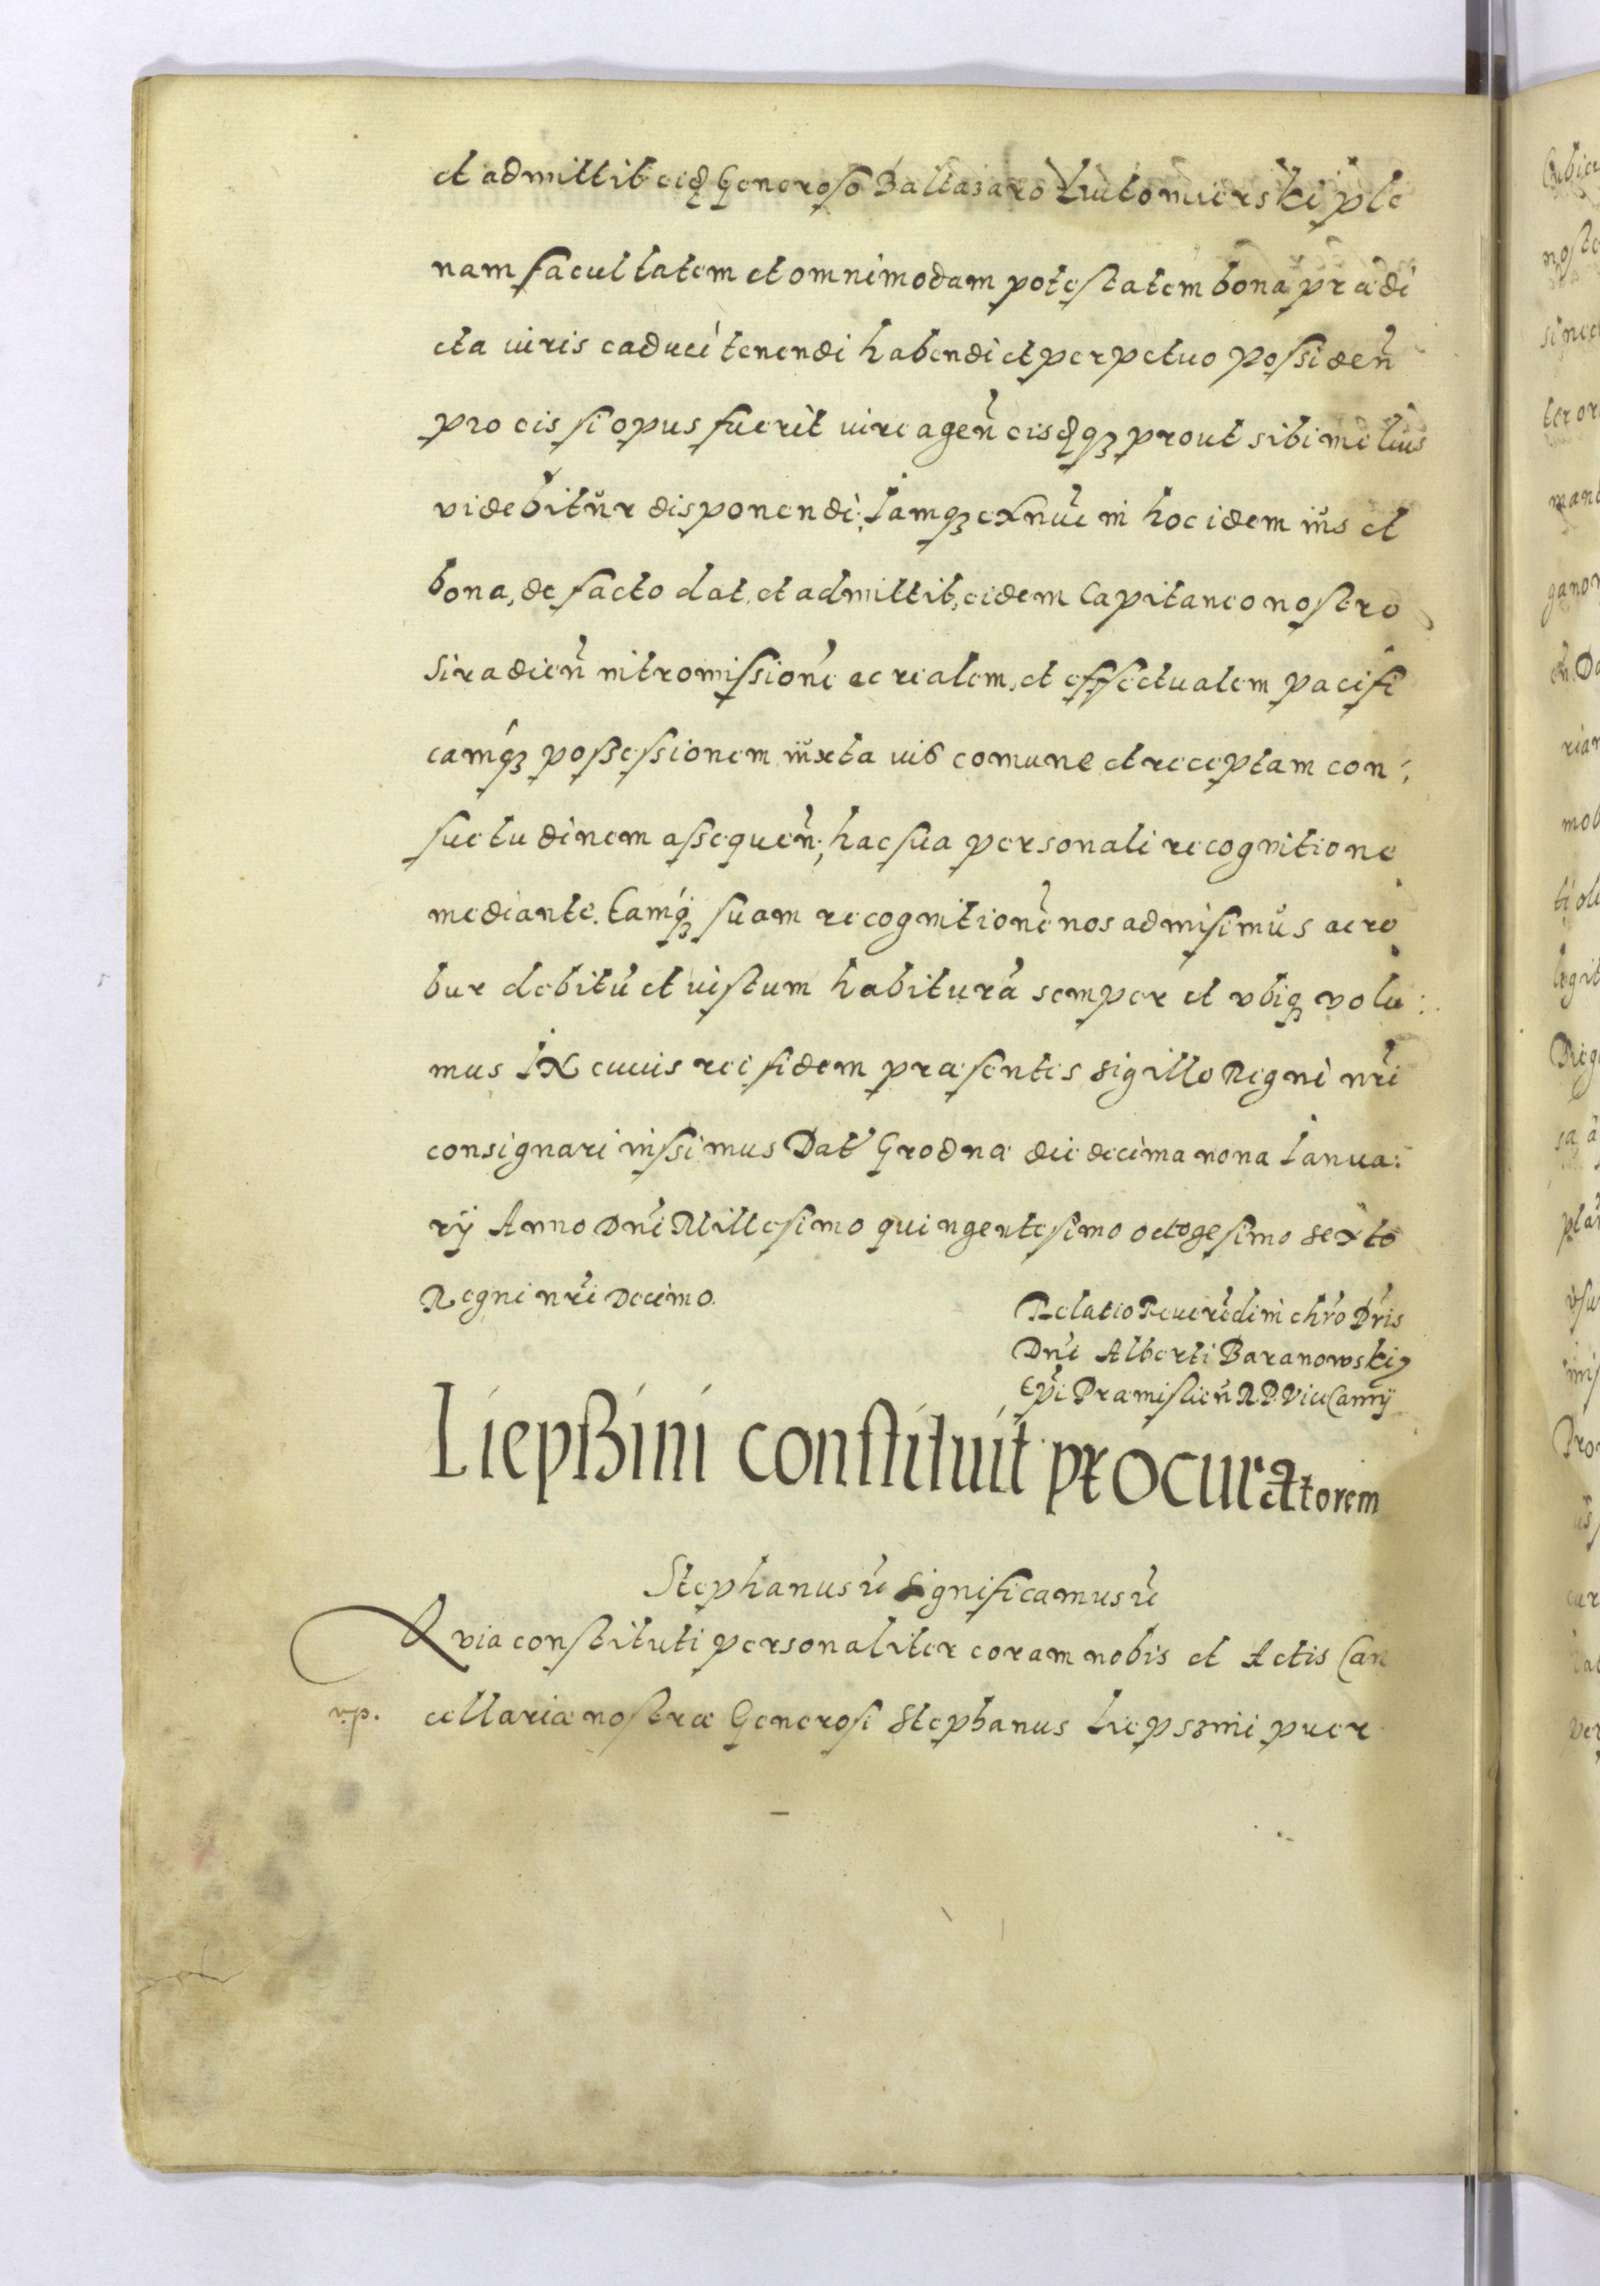 et admittit eidẽ Generoso Baltazaro Lutomierski ple
nam facultatem et omnimodam potestatem bona prædi
cta iuris caduci tenendi habendi et perpetuo possideñ
pro eis si opus fuerit iure ageñ eisdq̃ prout sibi melius
videbitur disponendi; Iamqȝ ex nũc in hoc idem ius et
bona, de facto dat, et admittit, eidem Capitaneo nostro
Siradieñ intromissionẽ ac realem, et effectualem pacifi
camqȝ possessionem iuxta ius comune et receptam con:
suetudinem assequeñ, hac sua personali recognitione
mediante. Eamqȝ suam recognitionẽ nos admisimus ac ro
bur debitũ et iustum habiturã semper et vbiqȝ volu:
mus IN cuius rei fidem præsentes sigillo Regni nr̃i
consignari iussimus Dat̃ Grodnæ die decima nona Ianua:
rij Anno Dñi Millesimo quingentesimo octogesimo sexto
Regni nr̃i Decimo.
Relatio Reueredi in chr̃o Pr̃is
Dñi Alberti Baranowski
Ep̃i Præmislieñ R P. Vicecanrij
Liepßini constituit procuratorem
Stephanus ꝛc̃ Significamus ꝛc̃
Quia constituti personaliter coram nobis et Actis Can
cellariæ nostræ Generosi Stephanus Liepszini puer